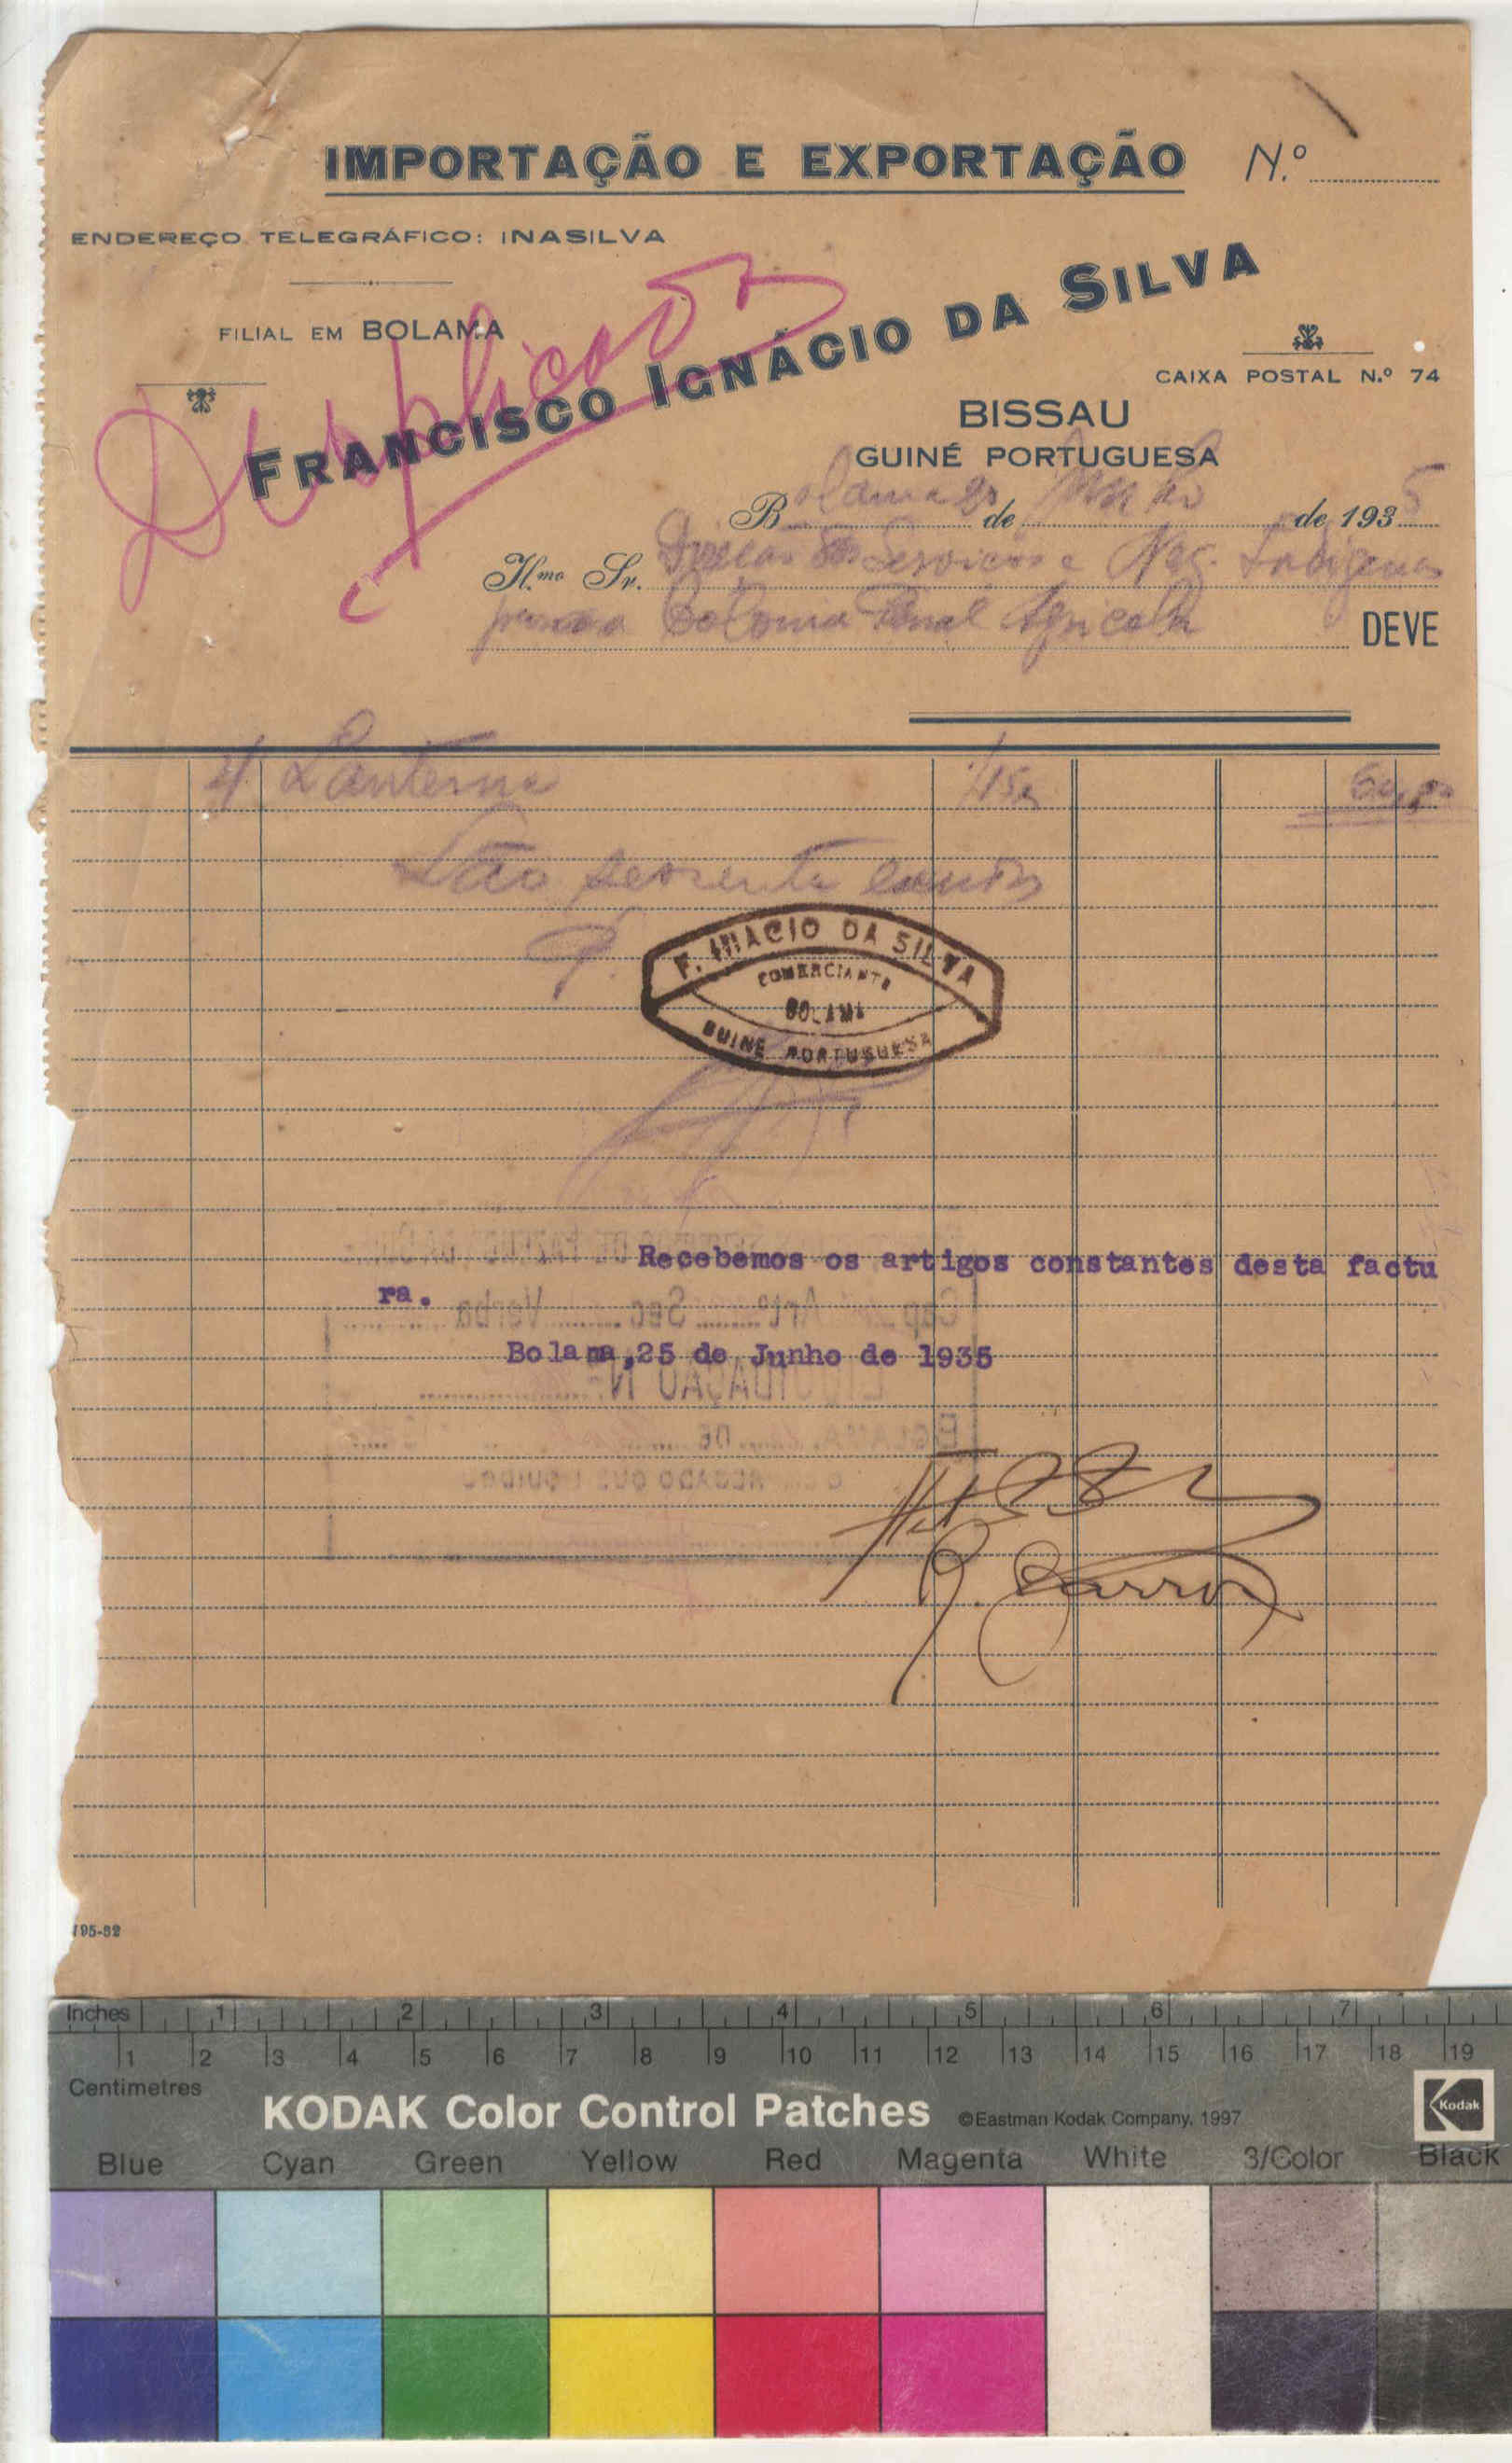 IMPORTAÇÃO E EXPORTAÇÃO N.º
ENDEREÇO TELEGRÁFICO: INASILVA
FILIAL EM BOLAMA
Duplicado
FRANCISCO IGNÁCIO DA SILVA
CAIXA POSTAL N.º 74
BISSAU
GUINÉ PORTUGUESA
Bolama de Junho de 1935
Il.mo Sr. Serviços e Neg. Indigenas
Colonia Penal Agricola DEVE
4 Lanterna /15
São sessenta escudos
F. INACIO DA SILVA
COMERCIANTE
BOLAMA
GUINÉ PORTUGUESA
Recebemos os artigos constantes desta factu
ra.
Bolama,25 de Junho de 1935
Barros
195-32
Inches 1 2 3 4 5 6 7
1 2 3 4 5 6 7 8 9 10 11 12 13 14 15 16 17 18 19
Centimetres
KODAK Color Control Patches ©Eastman Kodak Company, 1997 Kodak
Blue Cyan Green Yellow Red Magenta White 3/Color Black